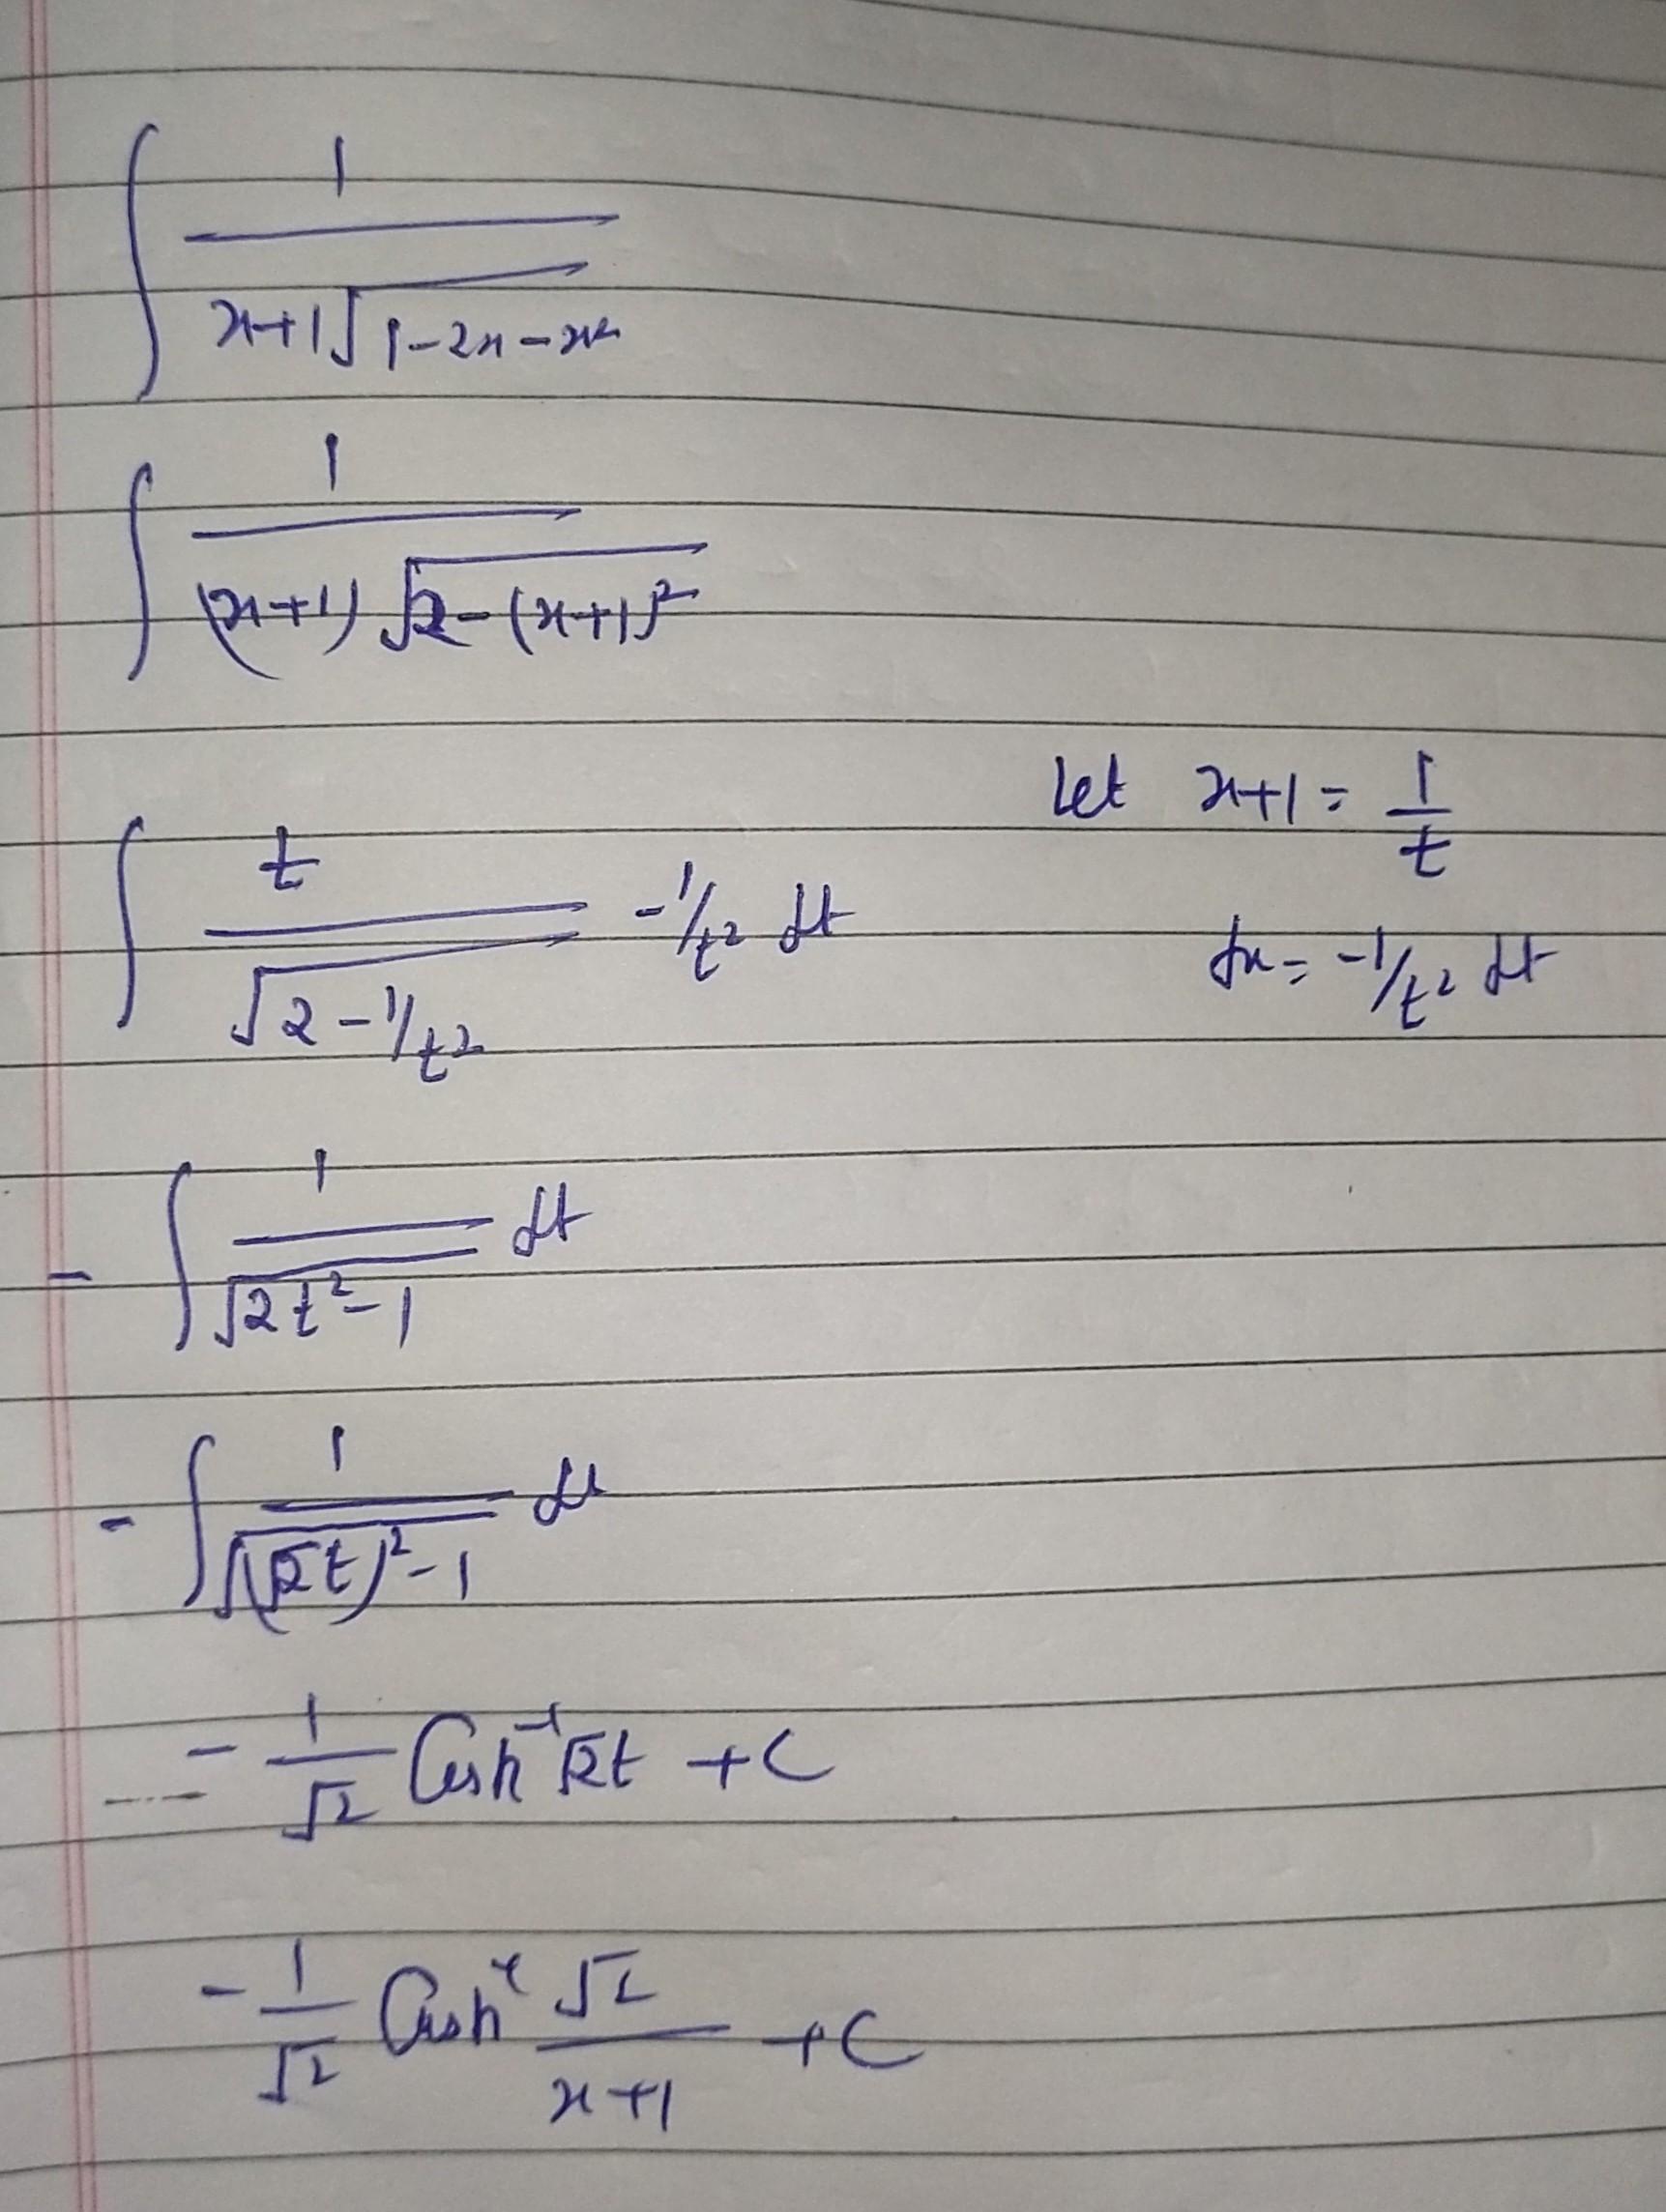 ∫ 1 / x+1 √(1-2x-x²)
∫ 1 / (x+1) √(2-(x+1)²)
Let x+1 = 1/t
∫ t / √(2-1/t²) -1/t² dt
dx = -1/t² dt
- ∫ 1 / √(2t²-1) dt
- ∫ 1 / √((√2t)²-1) dt
- 1/√2 Cosh⁻¹ √2t + C
- 1/√2 Cosh⁻¹ √2 / x+1 + C